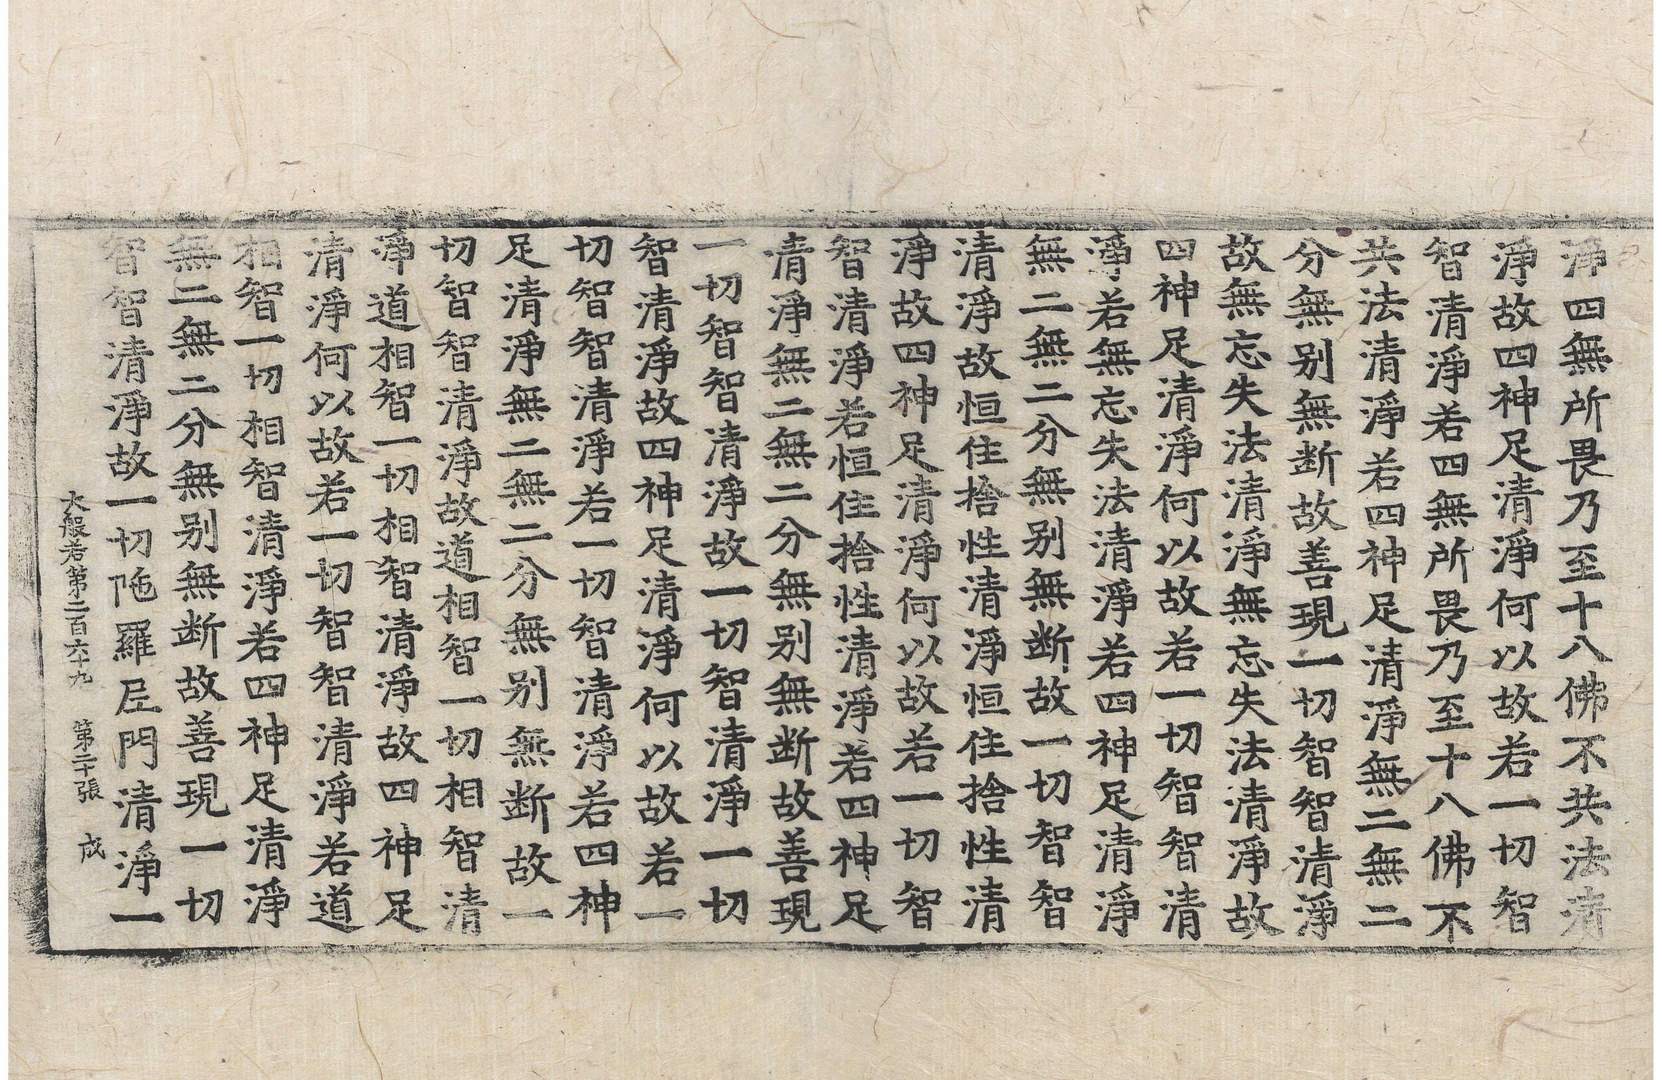 淨四無所畏乃至十八佛不共法清
淨故四神足清淨何以故若一切智
智清淨若四無所畏乃至十八佛不
共法清淨若四神足清淨無二無二
分無别無断故善現一切智智清淨
故無忘失法清淨無忘失法清淨故
四神足清淨何以故若一切智智清
淨若無忘失法清淨若四神足清淨
無二無二分無别無断故一切智智
清淨故恒住捨性清淨恒住捨性清
淨故四神足清淨何以故若一切智
智清淨若恒住捨性清淨若四神足
清淨無二無二分無别無断故善現
一切智智清淨故一切智清淨一切
智清淨故四神足清淨何以故若一
切智智清淨若一切智清淨若四神
足清淨無二無二分無别無断故一
切智智清淨故道相智一切相智清
淨道相智一切相智清淨故四神足
清淨何以故若一切智智清淨若道
相智一切相智清淨若四神足清淨
無二無二分無别無断故善現一切
智智清淨故一切陁羅尼門清淨一
大般若第二百六十九 第二十張 成